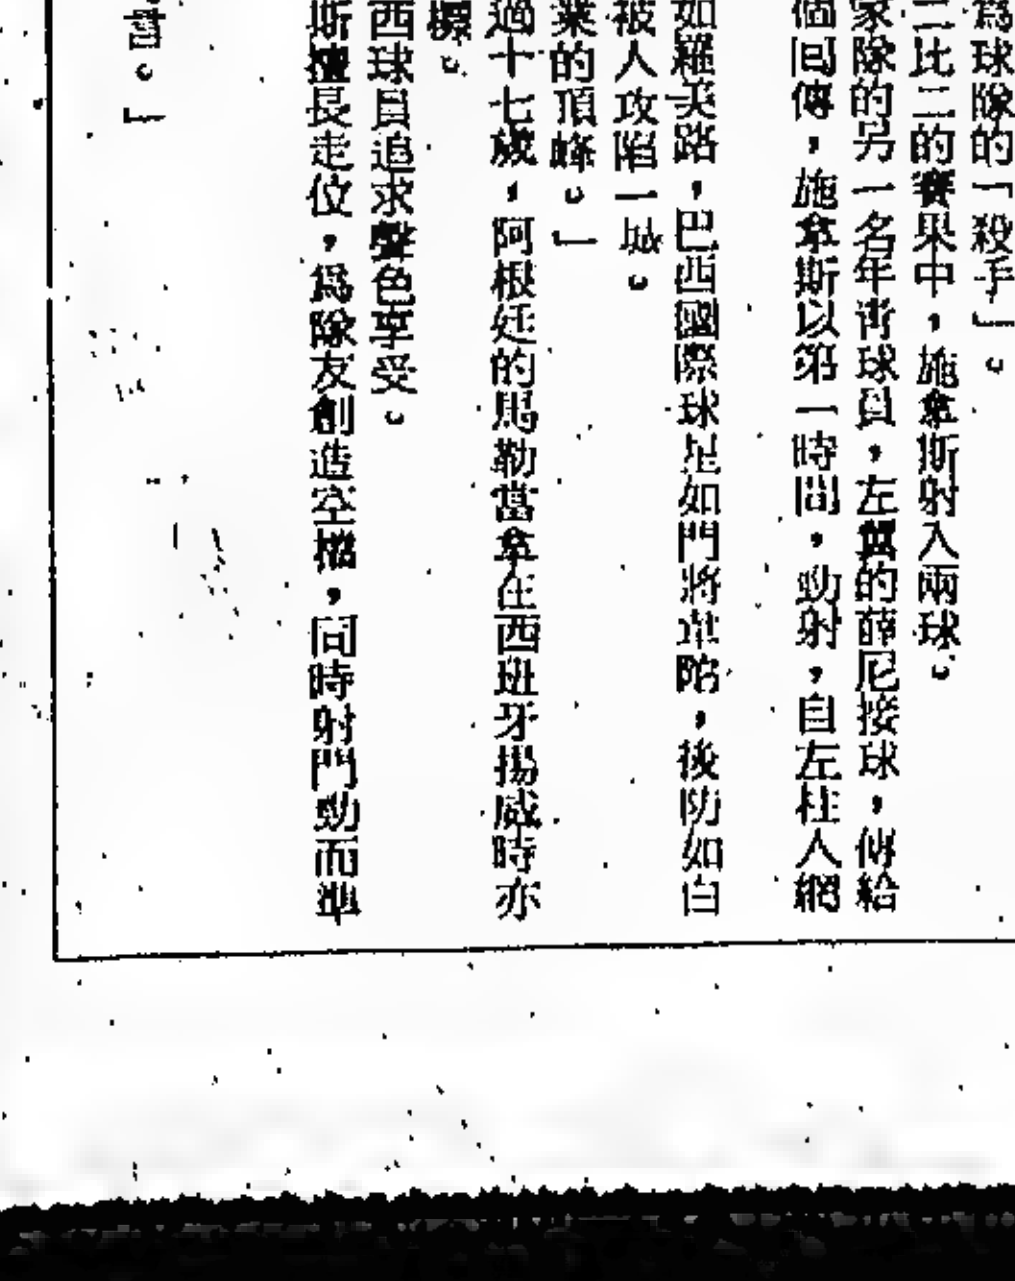 爲球隊的「殺手」。
二比二的賽果中，施拿斯射入兩球。
家隊的另一名年靑球員，左翼的薛尼接球，傳給
個回傳，施拿斯以第一時間，勁射，自左柱入網
如羅美路，巴西國際球星如門將韋陪，後防如白
被人攻陷一城。
業的頂峰。」
過十七歲，阿根廷的馬勒當拿在西班牙揚威時亦
西球員追求聲色享受。
斯擅長走位，爲隊友創造空檔，同時射門勁而準
書。」